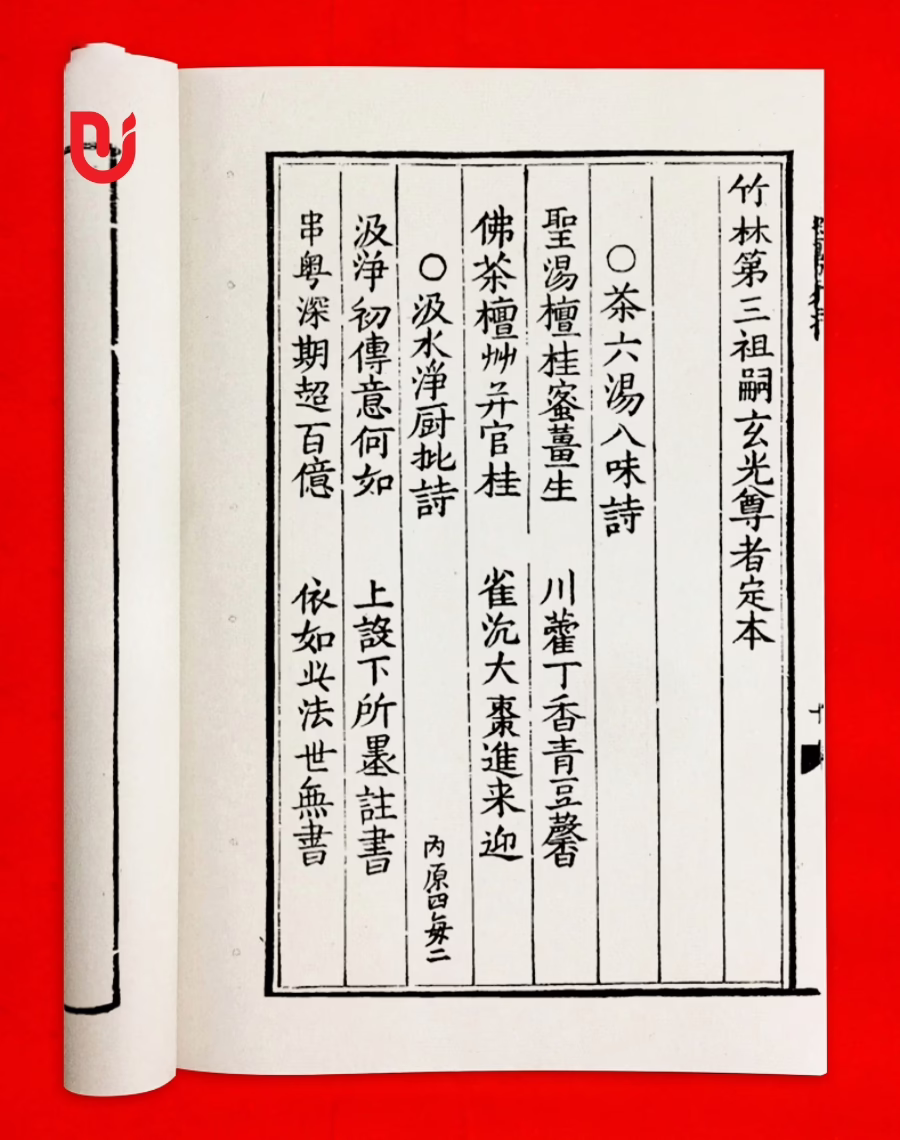 竹林第三祖嗣玄光尊者定本
○茶六湯八味詩
聖湯檀桂蜜薑生 川藿丁香青豆馨
佛茶檀艸并官桂 雀沉大棗進来迎
○汲水淨厨批詩 內原四每二
汲淨初傳意何如 上設下所墨註書
串粤深期超百億 依如此法世無書